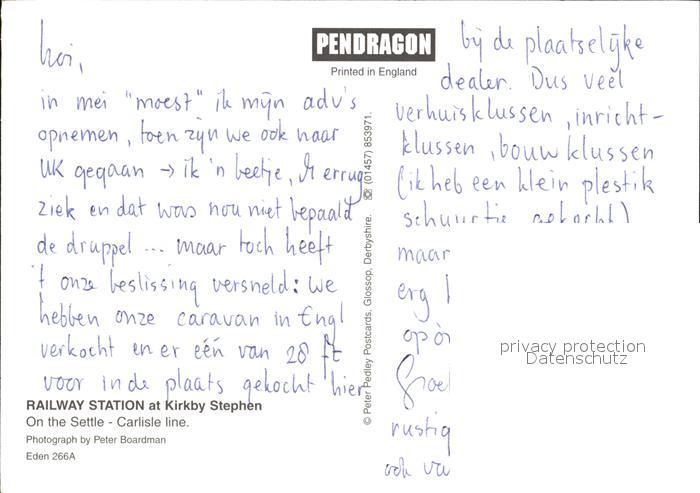 hoi,
in mei "moest" ik mijn adv's
opnemen, toen zijn we ook naar
UK gegaan → ik 'n beetje, M erg
ziek en dat was nou niet bepaald
de druppel ... maar toch heeft
't onze beslissing versneld: we
hebben onze caravan in Engl
verkocht en er één van 28 ft
voor in de plaats gekocht hier
RAILWAY STATION at Kirkby Stephen
On the Settle - Carlisle line.
Photograph by Peter Boardman
Eden 266A
PENDRAGON
Printed in England
© Peter Pedley Postcards, Glossop, Derbyshire. ☏ (01457) 853971.
bij de plaatselijke
dealer. Dus veel
verhuisklussen, inricht-
klussen, bouwklussen
(ik heb een klein plestik
schuurtje gekocht)
maar
erg
op
Groe
rustig
ook va
privacy protection
Datenschutz